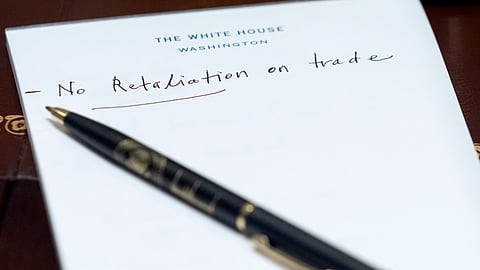 THE WHITE HOUSE
WASHINGTON
- No Retaliation on trade